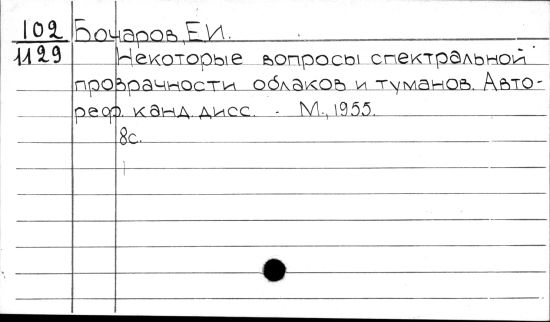 102 Бочаров, Е.И.
1129 Некоторые вопросы спектральной
прозрачности облаков и туманов. Авто-
реф. канд. дисс. - М., 1955.
8с.